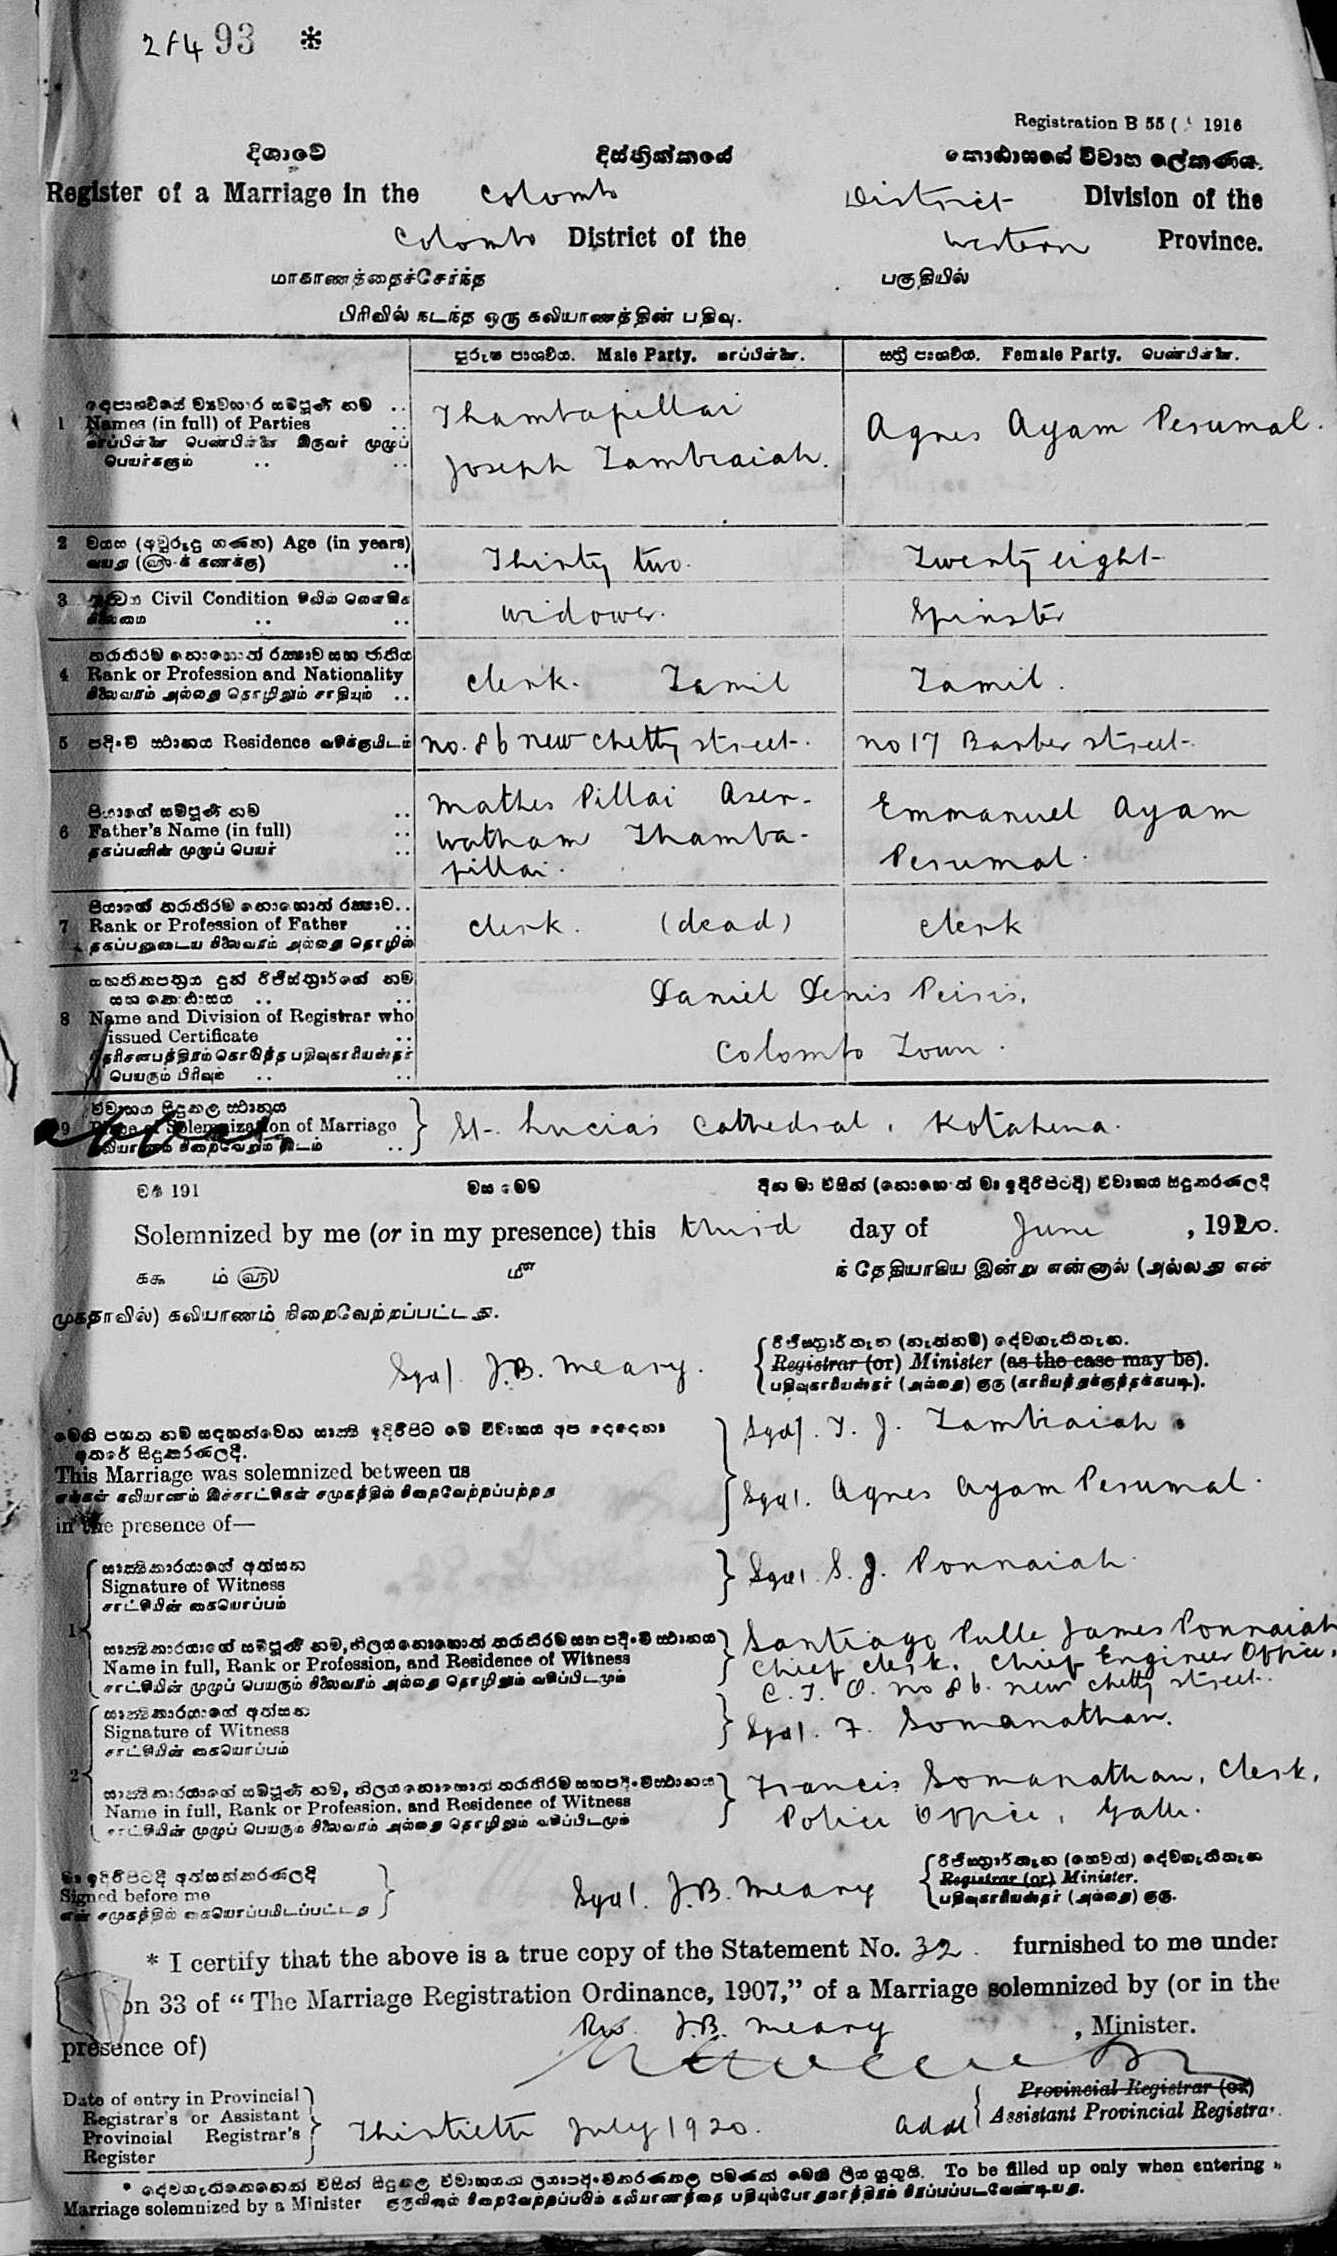 2f4 93 *
Registration B 55 ( 1916
දිශාවේ දිස්ත්‍රික්කයේ කොඨාසයේ විවාහ ලේකණය.
Register of a Marriage in the Colombo District Division of the
Colombo District of the Western Province.
மாகாணத்தைச்சேர்ந்த பகுதியில்
பிரிவில் நடந்த ஒரு கலியாணத்தின் பதிவு.
පුරුෂ පාශව්ය. Male Party. மாப்பிள்ளை. ස්ත්‍රී පාශව්ය. Female Party. பெண்பிள்ளை.
1 Names (in full) of Parties
மாப்பிள்ளை பெண்பிள்ளை இருவர் முழுப்
பெயர்களும்
Thambapillai
Joseph Tambiaiah.
Agnes Ayam Perumal.
2 වයස (අවුරුදු ගණන) Age (in years)
Thirty two. Twenty eight
3 Civil Condition
Widower. Spinster
4 Rank or Profession and Nationality
நிலைவரம் அல்லது தொழிலும் சாதியும்
Clerk. Tamil Tamil.
5 පදිංචි ස්ථානය Residence வசிக்குமிடம்
No. 86 New Chetty Street. No 17 Barber Street.
6 පියාගේ සම්පූර්ණ නම
Father's Name (in full)
தகப்பனின் முழுப் பெயர்
Mathes Pillai Aser-
watham Thamba-
pillai.
Emmanuel Ayam
Perumal.
7 Rank or Profession of Father
தகப்பனுடைய நிலைவரம் அல்லது தொழில்
Clerk. (dead) Clerk
8 Name and Division of Registrar who
issued Certificate
பெயரும் பிரிவும்
Daniel Denis Peiris,
Colombo Town.
9 Place of Solemnization of Marriage
St. Lucia's Cathedral, Kotahena.
වර්ෂ 191 වස මෙම දින මා විසින් (නොහොත් මා ඉදිරිපිටදී) විවාහය සිදුකරණලදී
Solemnized by me (or in my presence) this third day of June, 1920.
ந் தேதியாகிய இன்று என்னால் (அல்லது என்
முகதாவில்) கலியாணம் நிறைவேற்றப்பட்டது.
Sgd/. J.B. Meary.
Registrar (or) Minister (as the case may be).
பதிவுகாரியஸ்தர் (அல்லது) குரு (காரியத்துக்குத்தக்கபடி).
This Marriage was solemnized between us
எங்கள் கலியாணம் இச்சாட்சிகள் சமுகத்தில் நிறைவேற்றப்பற்றது
in the presence of—
Sgd/. T. J. Tambiaiah.
Sgd/. Agnes Ayam Perumal.
1 සාක්ෂිකාරයාගේ අත්සන
Signature of Witness
சாட்சியின் கையொப்பம்
Sgd/. S. J. Ponnaiah.
Name in full, Rank or Profession, and Residence of Witness
சாட்சியின் முழுப் பெயரும் நிலைவரம் அல்லது தொழிலும் வசிப்பிடமும்
Santiago Pulle James Ponnaiah
Chief Clerk, Chief Engineer Office,
C. T. O. No 86. New Chetty Street.
2 සාක්ෂිකාරයාගේ අත්සන
Signature of Witness
சாட்சியின் கையொப்பம்
Sgd/. F. Somanathan.
Name in full, Rank or Profession, and Residence of Witness
சாட்சியின் முழுப் பெயரும் நிலைவரம் அல்லது தொழிலும் வசிப்பிடமும்
Francis Somanathan, Clerk,
Police Office, Galle.
මා ඉදිරිපිටදී අත්සන්කරණලදී
Signed before me
என் சமுகத்தில் கையொப்பமிடப்பட்டது
Sgd/. J.B. Meary
Registrar (or) Minister.
பதிவுகாரியஸ்தர் (அல்லது) குரு.
* I certify that the above is a true copy of the Statement No. 32. furnished to me under
on 33 of "The Marriage Registration Ordinance, 1907," of a Marriage solemnized by (or in the
presence of) Rev. J.B. Meary, Minister.
Date of entry in Provincial
Registrar's or Assistant
Provincial Registrar's
Register
Thirtieth July 1920.
Addl
Provincial Registrar (or)
Assistant Provincial Registrar.
To be filled up only when entering a
Marriage solemnized by a Minister